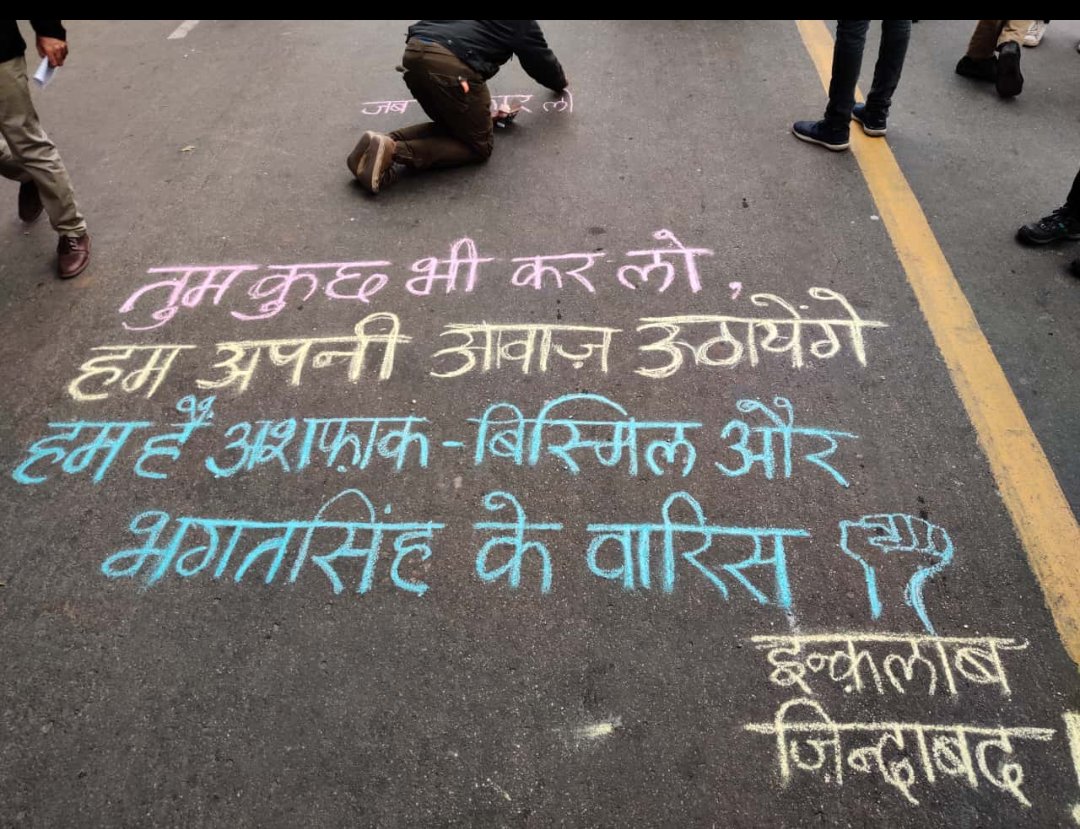 जब
तुम कुछ भी कर लो,
हम अपनी आवाज़ ऊठायेंगे
हम हैं अशफ़ाक-बिस्मिल और
भगतसिंह के वारिस
इन्क़लाब
ज़िन्दाबद!